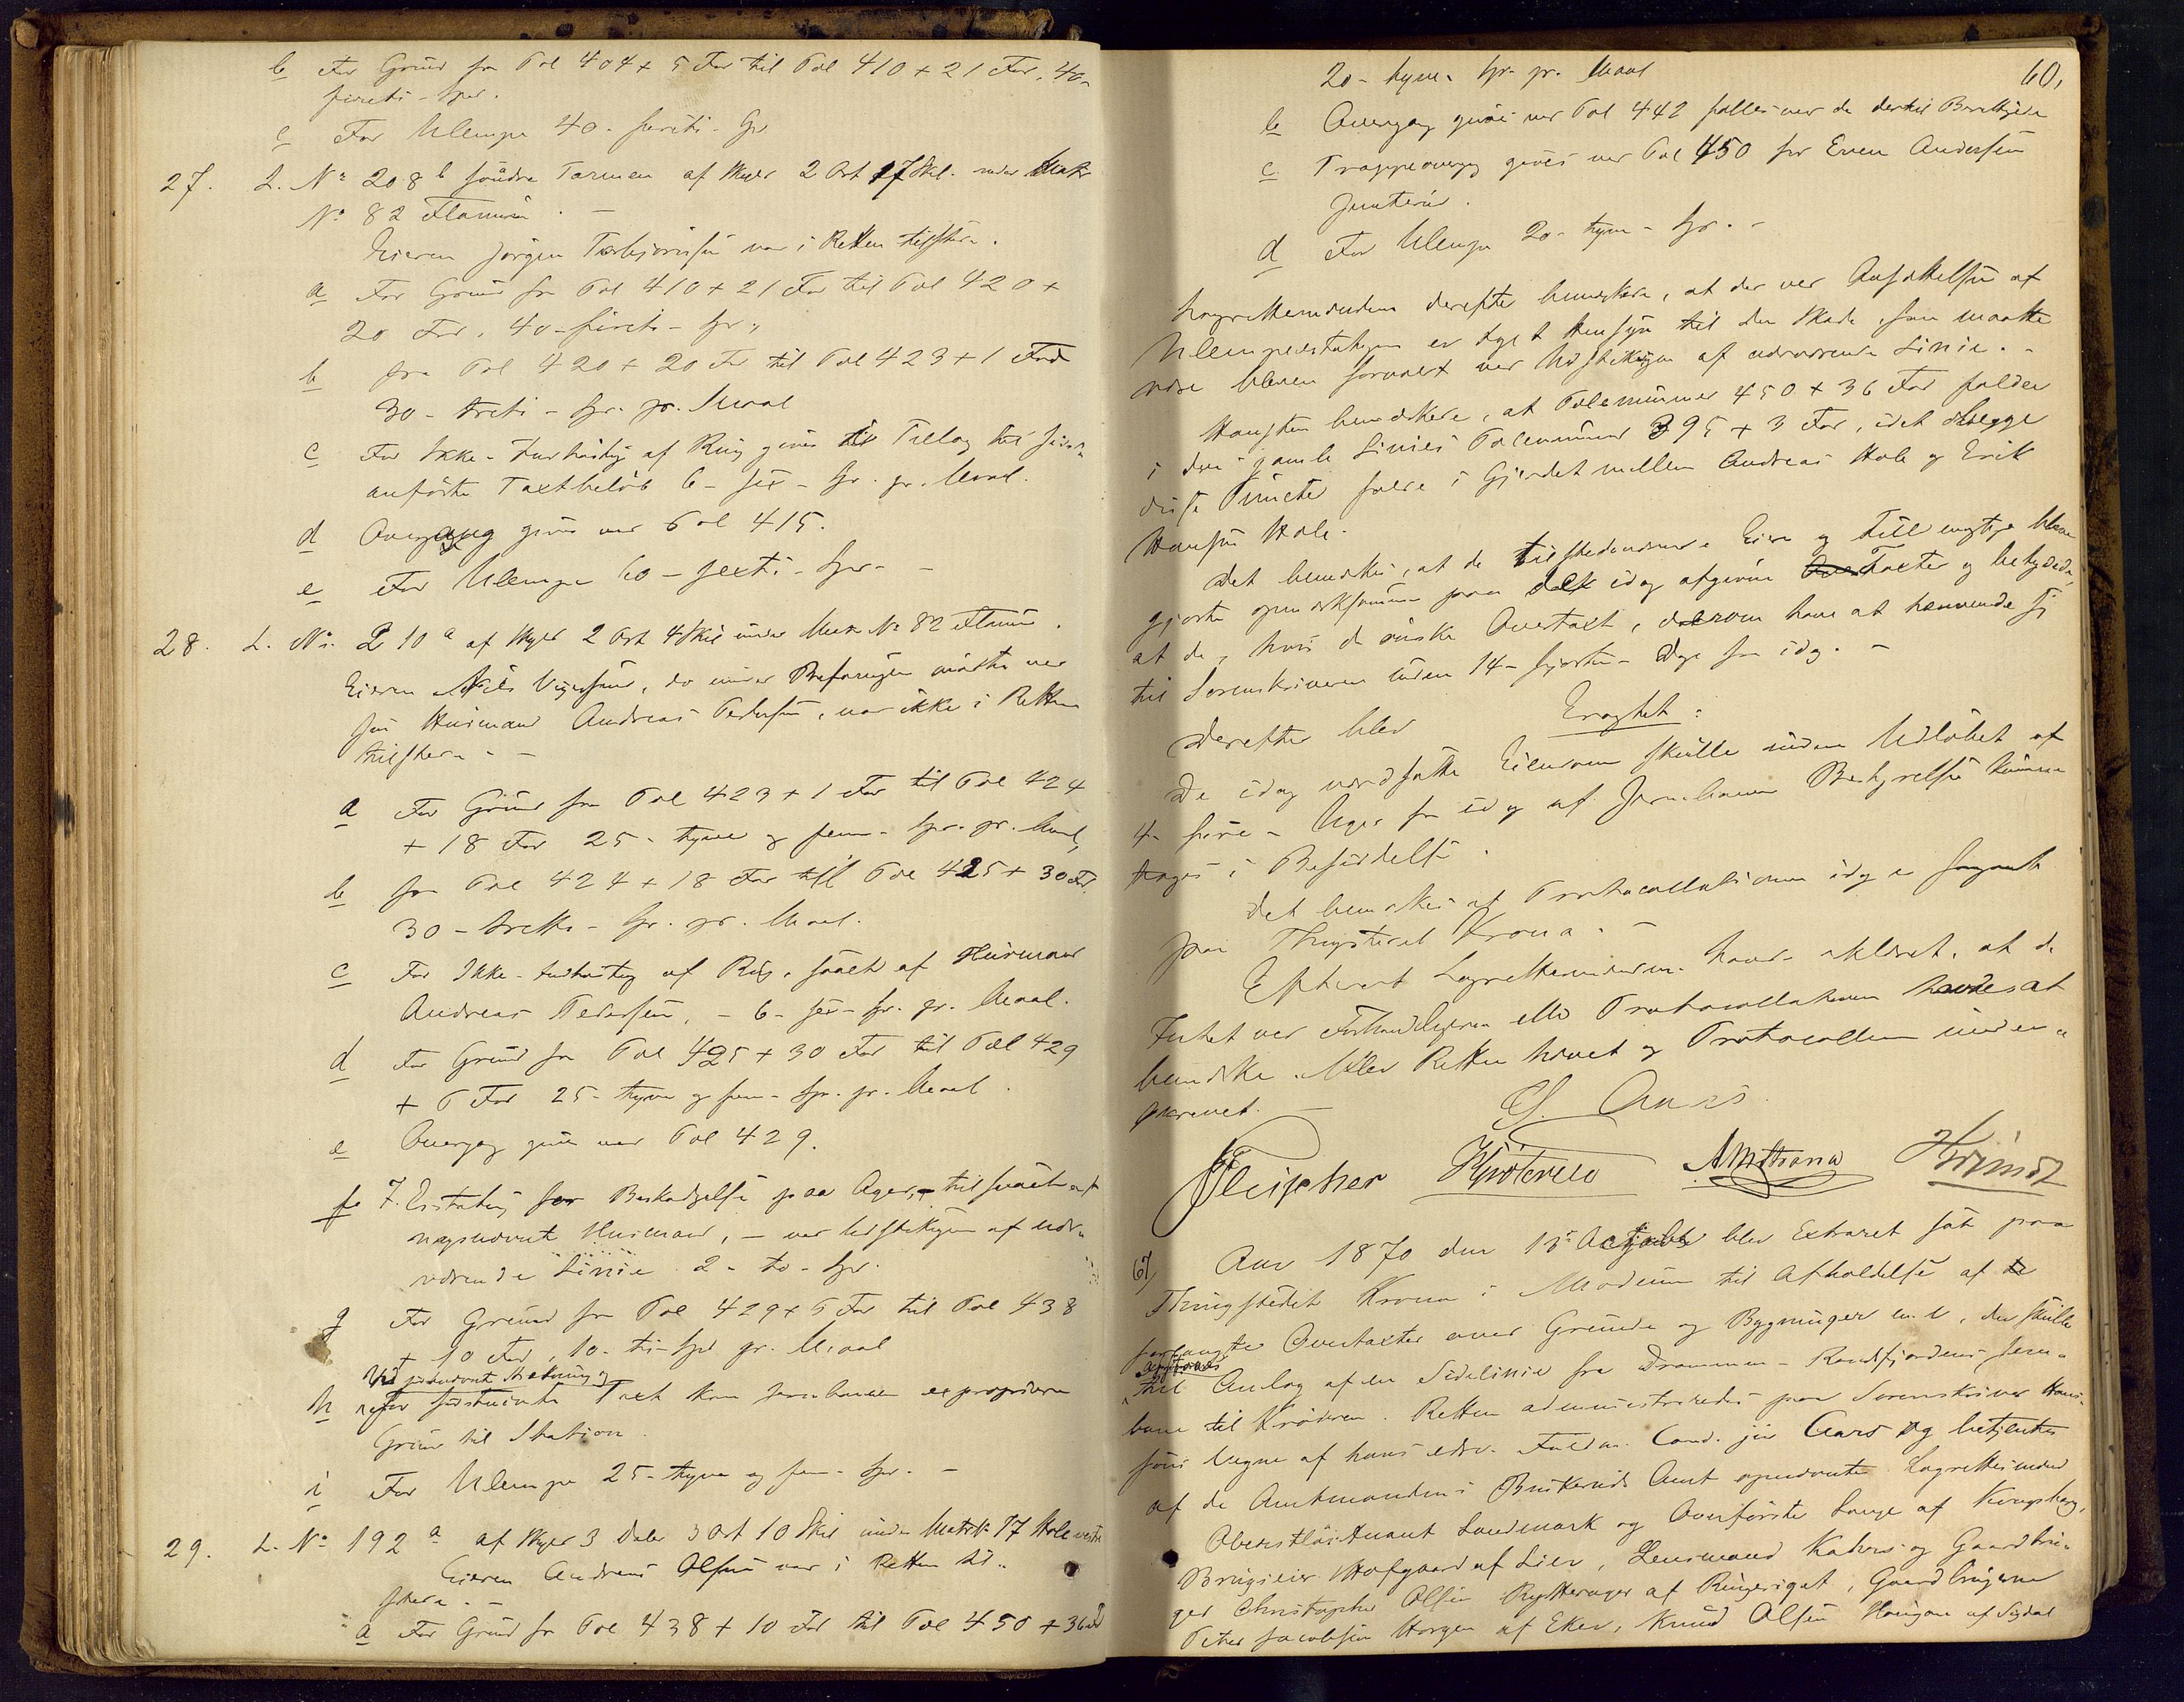 b For Grund fra Pæl 404 + 5 Fod til Pæl 410 + 21 Fod, 40-
fireti - Spd.
c For Ulempe 40 - firti - Sp.
27. L. No 208 b søndre Tormen af Skyld 2 Ort 17 Skil. under Matr.
No 82 Flannum. -
Eieren Jørgen Torbjørnsen var i Retten tilstede.
a For Grund fra Pæl 410 + 21 Fod til Pæl 420 +
20 Fod, 40 - fireti - Sp.,
b fra Pæl 420 + 20 Fod til Pæl 423 + 1 Fod
30 - treti - Sp. pr. Maal
c For Ikke-Indhøstning af Rug gives til Tillæg til sidst-
anførte Taxtbeløb 6 - sex - Sp. pr. Maal.
d Overgang gives ved Pæl 415.
e For Ulempe 60 - sexti - Spd. -
28. L. No. 210 a af Skyld 2 Ort 4 Skil under Matr. No 82 Flannum.
Eieren Nils , der under Befaringen mødte ved
sin Husmand Andreas Pedersen, var ikke i Retten
tilstede - -
a For Grund fra Pæl 423 + 1 Fod til Pæl 424
+ 18 Fod 25 - tyve og fem - Spd. pr. Maal,
b fra Pæl 424 + 18 Fod til Pæl 425 + 30 Fod
30 - tretti - Sp. pr. Maal.
c For Ikke-Indhøstning af Rug, saaet af Husmand
Andreas Pedersen, - 6 - sex - Sp. pr. Maal.
d For Grund fra Pæl 425 + 30 Fod til Pæl 429
+ 5 Fod 25 - tyve og fem - Sp. pr. Maal.
e Overgang gives ved Pæl 429.
f. 7. Erstatning for Beskadigelse paa Ager, tilsaaet af
nysnævnt Husmand, - ved Udstikningen af nær-
værende Linie 2 - to - Spd.
g For Grund fra Pæl 429 + 5 Fod til Pæl 438
+ 10 Fod, 10 - ti - Spd pr. Maal
Ved sidstnævnt Strækning og
h efter sidstnævnte Taxt kan Jernbanen expropriere
Grund til Station.
i For Ulempe 25 - tyve og fem - Spd. -
29. L. No 192 a af Skyld 3 Daler 3 Ort 10 Skil under Matr. 77 Hole vestre
Eieren Andreas Olsen var i Retten til-
stede. -
a For Grund fra Pæl 438 + 10 Fod til Pæl 450 + 36 Fod
60.
20 - tyve - Sp. pr. Maal
b Overgang gives ved Pæl 442 fælles med de dertil Berettigede
c Trappeovergang gives ved Pæl 450 for Even Andersen
.
d For Ulempe 20 - tyve - Sp. -
Lagrettemændene derefter bemærkede, at der ved Ansættelsen af
Ulempeerstatningen er taget Hensyn til den Skade, som maatte
være bleven forvoldt ved Udstikningen af nærværende Linie. -
bemærkede, at Pælenummer 450 + 36 Fod falder
i den gamle Linies Pælenummer 395 + 3 Fod, idet begge
disse Puncter falde i Gjerdet mellem Andreas Hole og Erik
Hansen Hole.
Det bemærkes, at de tilstedeværende Eiere og Fuldmægtige bleve
gjorte opmærksomme paa de idag afgivne Taxter og betydede,
at de, hvis de ønske Overtaxt, derom have at henvende sig
til Sorenskriveren inden 14 - fjorten - Dage fra idag. -
Derefter blev
Eragtet:
De idag værdsatte Eiendomme skulle inden Udløbet af
4 - fire - Uger fra idag af Jernbanens Bestyrelse kunne
tages i Besiddelse.
Det bemærkes at Protocollationen idag er foregaaet
paa Thingstedet Krona. -
Efterat Lagrettemændene havde erklæret, at de
Intet ved Forhandlingerne eller Protocollationen havde at
bemærke. Blev Retten hævet og Protocollen under-
skrevet. -
Aars
Fleischer
67) Aar 1870 den 15 October blev Extraret sat paa
Thingstedet Krona i Modum til Afholdelse af de
forlangte Overtaxter over Grunde og Bygninger m. v., der skulle
afstaaes
til Anlæg af en Sidelinie fra Drammen - Randsfjordens Jern-
bane til Krøderen. Retten administreredes paa Sorenskriver Han-
sens Vegne af hans edsv. Fuldm. Cand. jur Aars og betjentes
af de Amtmanden i Buskeruds Amt opnævnte Lagrettesmænd
Oberstløitnant Landmark og Overførster Lange af Kongsberg,
Brugseier Hofgaard af Lier, Lensmand Kahrs og Gaardbru-
ger Christopher Olsen Rytterager af Ringeriget, Gaardbrugerne
Peter Jacobsen Horgen af Eker, Knud Olsen af Sigdal